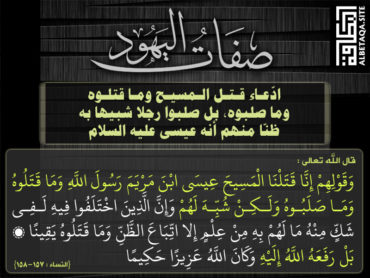 صفات اليهود
البطاقة
ALBETAQA.SITE
ادعاء قتل المسيح وما قتلوه
وما صلبوه، بل صلبوا رجلا شبيها به
ظنا منهم أنه عيسى عليه السلام
قال الله تعالى :
وَقَوْلِهِمْ إِنَّا قَتَلْنَا الْمَسِيحَ عِيسَى ابْنَ مَرْيَمَ رَسُولَ اللَّهِ وَمَا قَتَلُوهُ
وَمَا صَلَبُوهُ وَلَٰكِنْ شُبِّهَ لَهُمْ وَإِنَّ الَّذِينَ اخْتَلَفُوا فِيهِ لَفِي
شَكٍّ مِنْهُ مَا لَهُمْ بِهِ مِنْ عِلْمٍ إِلَّا اتِّبَاعَ الظَّنِّ وَمَا قَتَلُوهُ يَقِينًا ۞
بَلْ رَفَعَهُ اللَّهُ إِلَيْهِ وَكَانَ اللَّهُ عَزِيزًا حَكِيمًا
[النساء : ١٥٧-١٥٨]